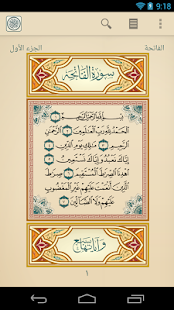 9:18
الفاتحة
الجزء الأول
سورة الفاتحة
بسم الله الرحمن الرحيم
الحمد لله رب العالمين الرحمن
الرحيم ملك يوم الدين
إياك نعبد وإياك نستعين
اهدنا الصراط المستقيم
صراط الذين أنعمت عليهم غير المغضوب
عليهم ولا الضالين
وآياتها سبع
١